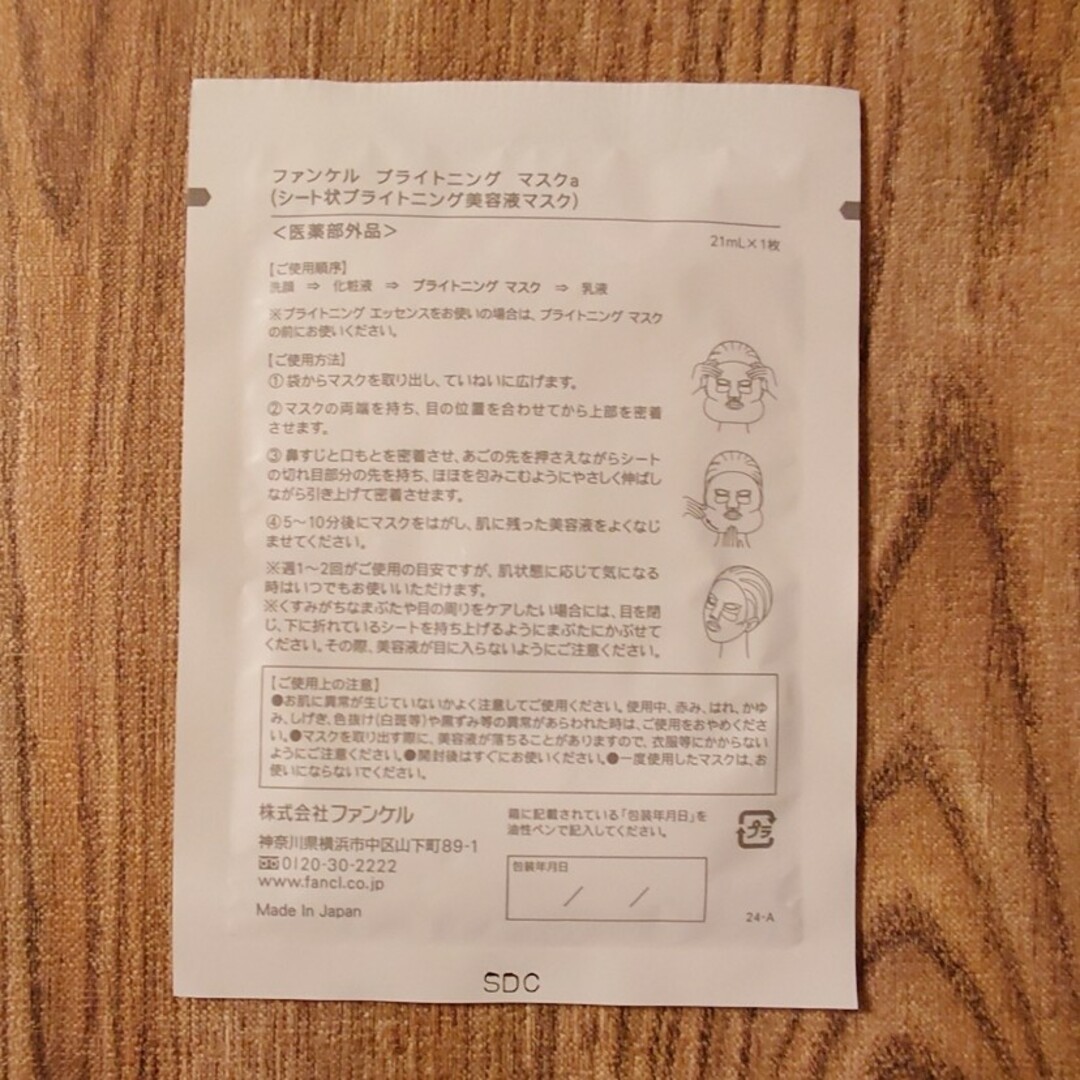 ファンケル ブライトニング マスクa
(シート状ブライトニング美容液マスク)
＜医薬部外品＞
21mL×1枚
【ご使用順序】
洗顔 ⇒ 化粧液 ⇒ ブライトニング マスク ⇒ 乳液
※ブライトニング エッセンスをお使いの場合は、ブライトニング マスク
の前にお使いください。
【ご使用方法】
①袋からマスクを取り出し、ていねいに広げます。
②マスクの両端を持ち、目の位置を合わせてから上部を密着
させます。
③鼻すじと口もとを密着させ、あごの先を押さえながらシート
の切れ目部分の先を持ち、ほほを包みこむようにやさしく伸ばし
ながら引き上げて密着させます。
④5～10分後にマスクをはがし、肌に残った美容液をよくなじ
ませてください。
※週1～2回がご使用の目安ですが、肌状態に応じて気になる
時はいつでもお使いいただけます。
※くすみがちなまぶたや目の周りをケアしたい場合には、目を閉
じ、下に折れているシートを持ち上げるようにまぶたにかぶせて
ください。その際、美容液が目に入らないようにご注意ください。
【ご使用上の注意】
●お肌に異常が生じていないかよく注意してご使用ください。使用中、赤み、はれ、かゆ
み、しげき、色抜け(白斑等)や黒ずみ等の異常があらわれた時は、ご使用をおやめくださ
い。●マスクを取り出す際に、美容液が落ちることがありますので、衣服等にかからない
ようにご注意ください。●開封後はすぐにお使いください。●一度使用したマスクは、お
使いにならないでください。
株式会社ファンケル
神奈川県横浜市中区山下町89-1
0120-30-2222
www.fancl.co.jp
Made In Japan
箱に記載されている「包装年月日」を
油性ペンで記入してください。
プラ
包装年月日
／ ／
24-A
SDC